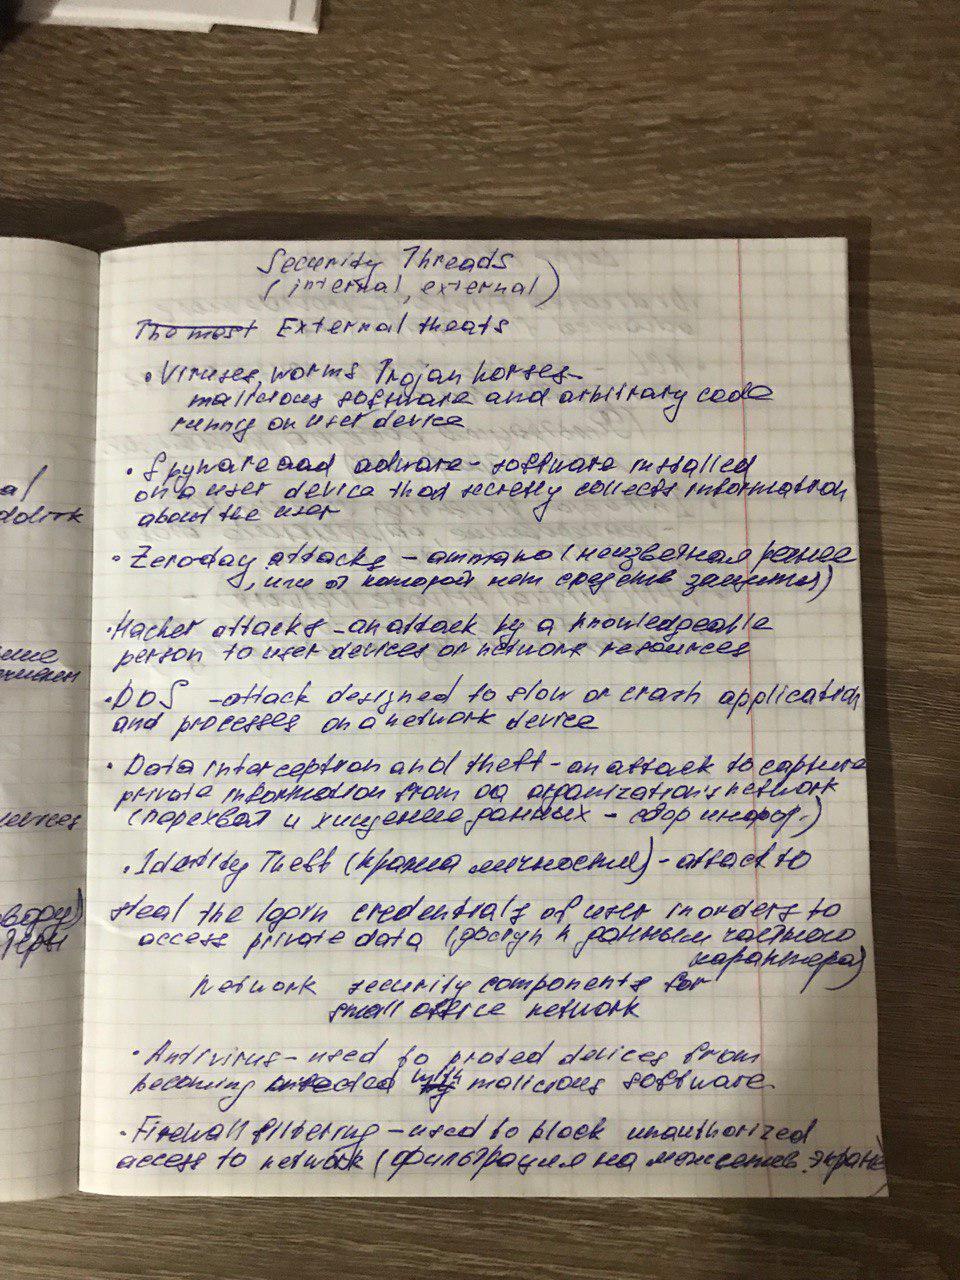 Security Threads
(internal, external)
The most External theats
• Viruses, worms Trojan horses-
malicious software and arbitrary code
runny on user device
• Spyware and adware - software installed
on a user device that secretly collects information
about the user
• Zero day attacks - аттака (неизвестная ранее
, или от которой нет средств защиты)
• Hacker attacks - an attack by a knowledgeable
person to user devices or network resources
• DOS - attack designed to slow or crash application
and processes on a network device
• Data interception and theft - an attack to capture
private information from an organization's network
(перехват и хищение данных - сбор инфор.)
• Identity Theft (кража личности) - attack to
steal the login credentials of user in orders to
access private data (доступ к данным частного
характера)
Network security components for
small office network
• Antivirus - used to proted devices from
becoming infected with malicious software
• Firewall filtering - used to block unauthorized
access to network (фильтрация на межсетев. экране
al
ения
евгсеs
вору)